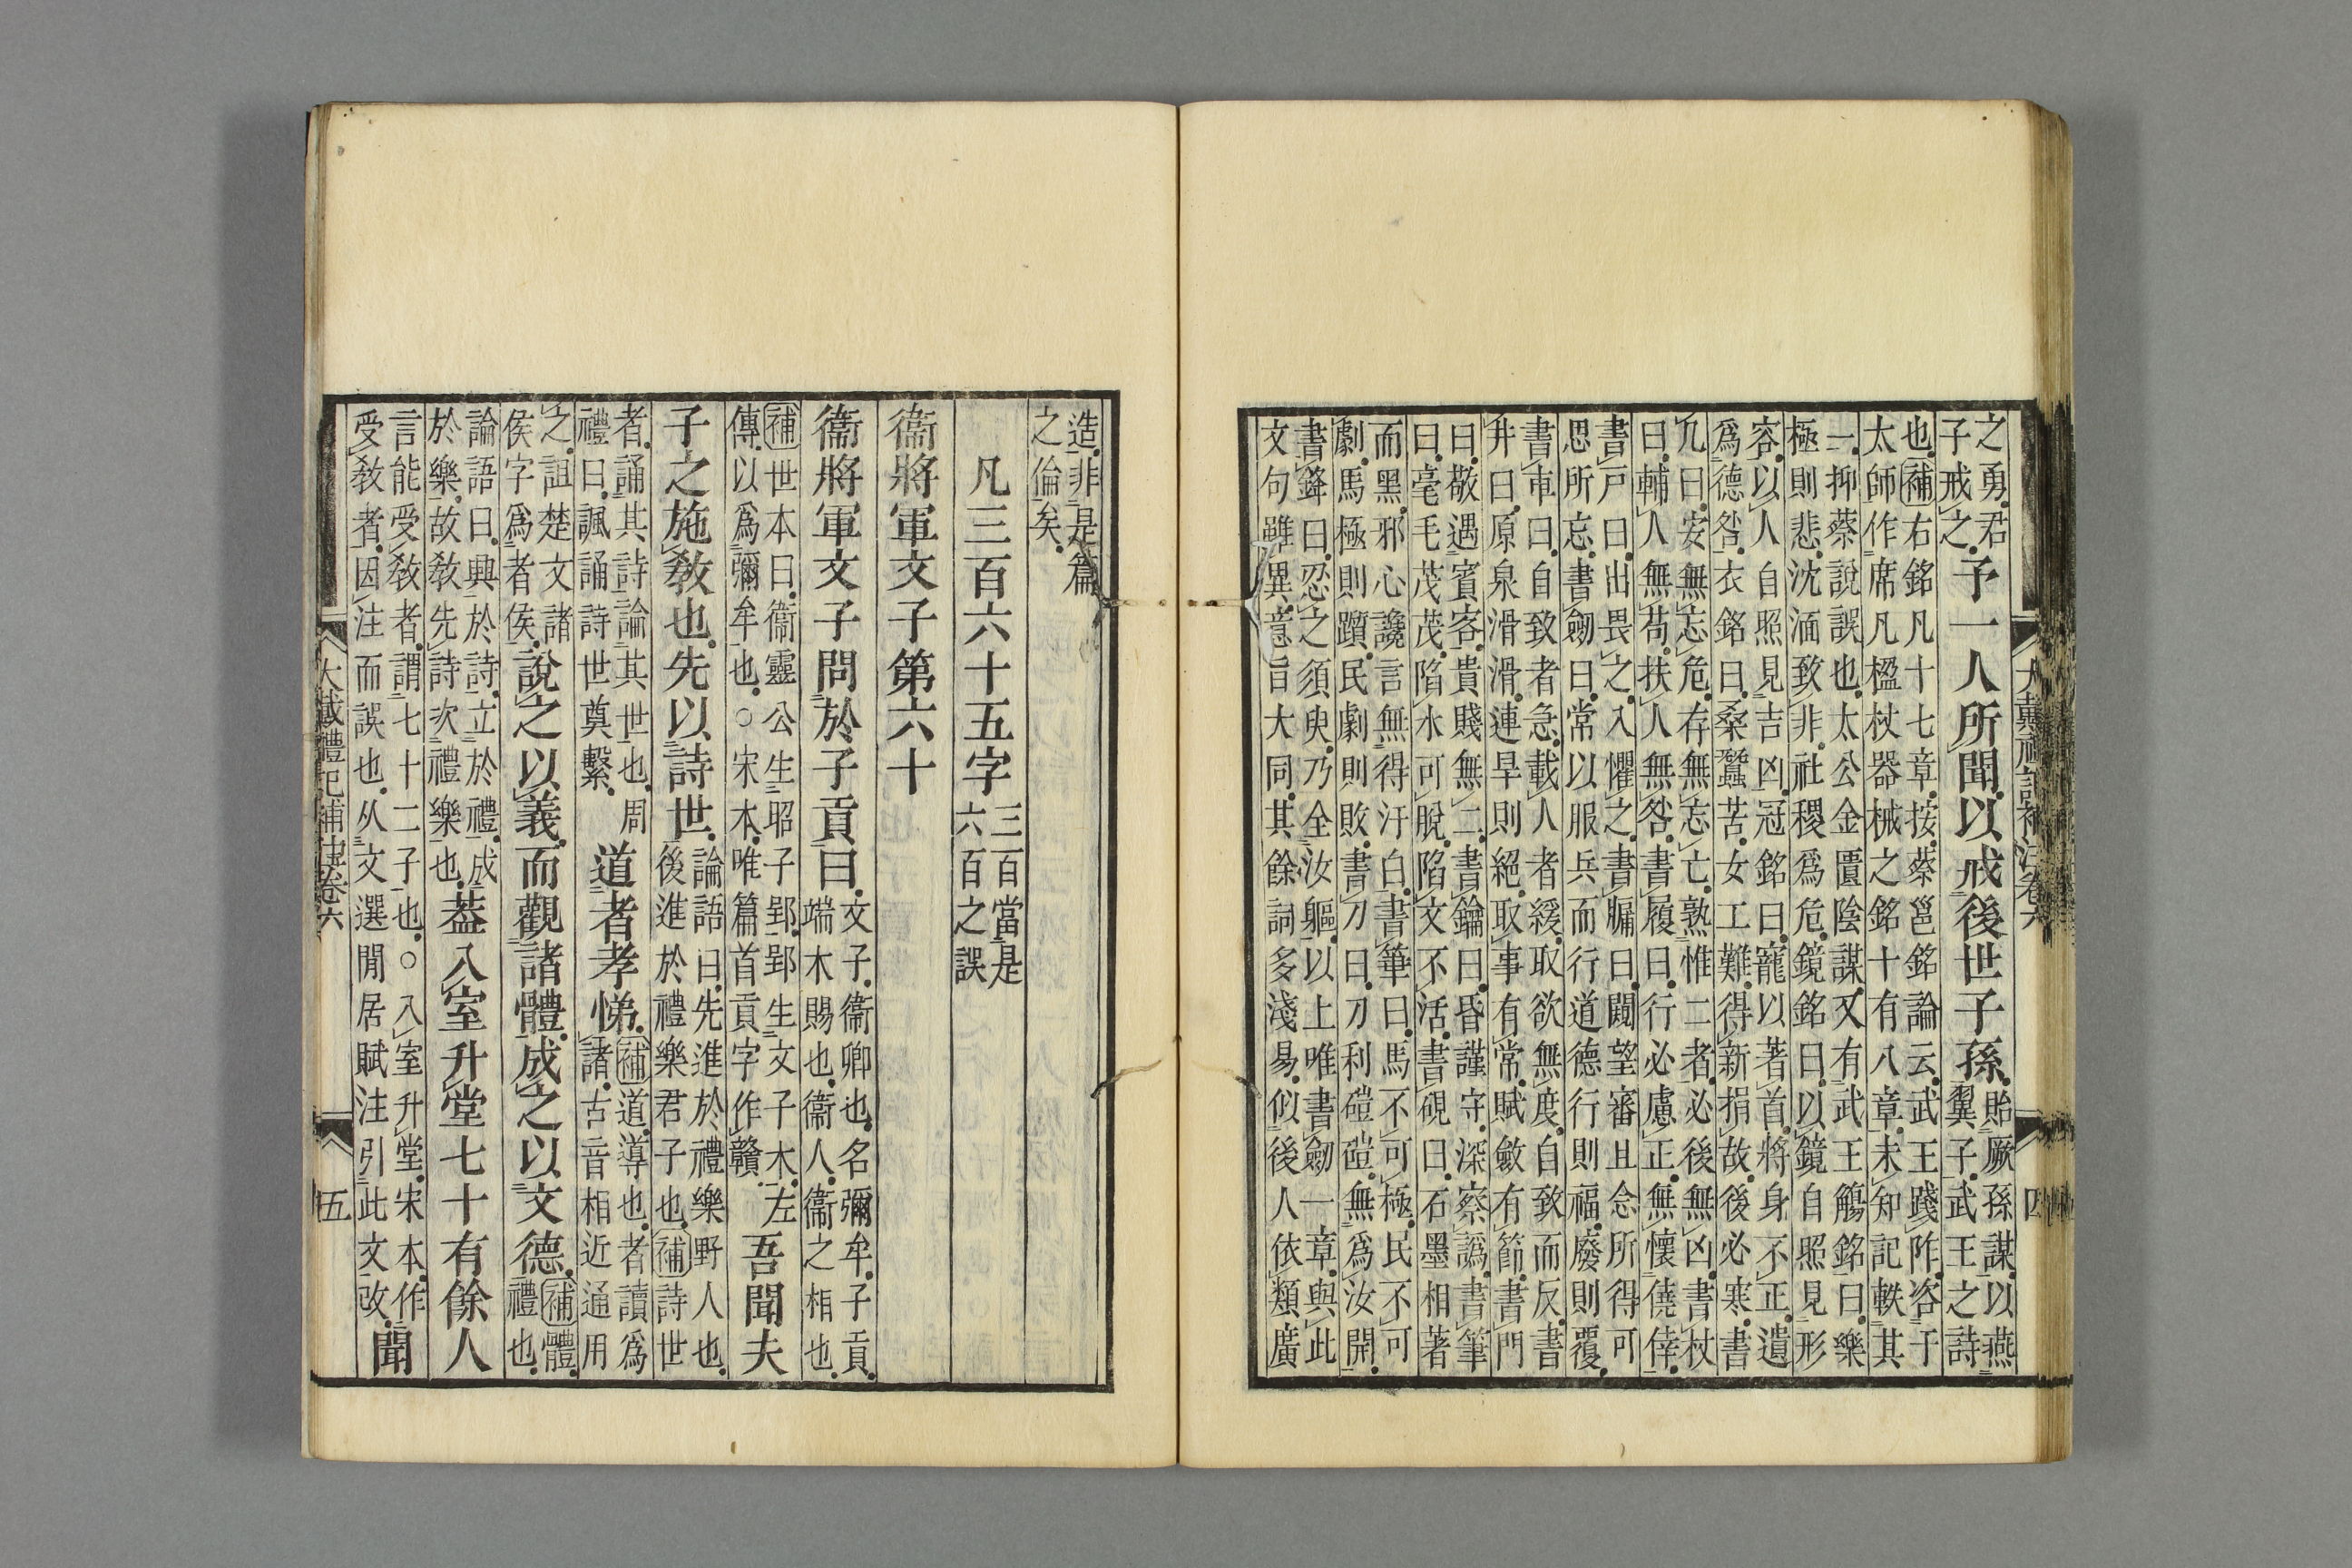 之勇君
子戒之
予一人所聞以戒後世子孫
貽厥孫謀以燕
翼子武王之詩
也補右銘凡十七章按蔡邕銘論云武王踐阼咨于
太師作席凡楹杖器械之銘十有八章未知記軼其
一抑蔡說誤也太公金匱陰謀又有武王觴銘曰樂
極則悲沈湎致非社稷爲危鏡銘曰以鏡自照見形
容以人自照見吉凶冠銘曰寵以著首將身不正遺
爲德咎衣銘曰桑蠶苦女工難得新捐故後必寒書
几曰安無忘危存無忘亡熟惟二者必後無凶書杖
曰輔人無苟扶人無咎書履曰行必慮正無懷僥倖
書戶曰出畏之入懼之書牖曰闚望審且念所得可
思所忘書劒曰常以服兵而行道德行則福廢則覆
書車曰自致者急載人者緩取欲無度自致而反書
井曰原泉滑滑連旱則絕取事有常賦斂有節書門
曰敬遇賓客貴賤無二書鑰曰昏謹守深察譌書筆
曰毫毛茂茂陷水可脫陷文不活書硯曰石墨相著
而黑邪心讒言無得汙白書箠曰馬不可極民不可
劇馬極則躓民劇則敗書刀曰刀利磑磑無爲汝開
書鋒曰忍之須臾乃全汝軀以上唯書劒一章與此
文句雖異意旨大同其餘詞多淺易似後人依類廣
大戴禮記補注卷六 四
造非是篇
之倫矣
凡三百六十五字
三百當是
六百之誤
衞將軍文子第六十
衞將軍文子問於子貢曰
文子衞卿也名彌牟子貢
端木賜也衞人衞之相也
補世本曰衞靈公生昭子郢郢生文子木左
傳以爲彌牟也○宋本唯篇首貢字作贛
吾聞夫
子之施教也先以詩世
論語曰先進於禮樂野人也
後進於禮樂君子也補詩世
者誦其詩論其世也周
禮曰諷誦詩世奠繫
道者孝悌
補道導也者讀爲
諸古音相近通用
之詛楚文諸
侯字爲者侯
說之以義而觀諸體成之以文德
補體
禮也
論語曰興於詩立於禮成
於樂故教先詩次禮樂也
葢入室升堂七十有餘人
言能受教者謂七十二子也○入室升堂宋本作
受教者因注而誤也从文選閒居賦注引此文改
聞
大戴禮記補注卷六 五